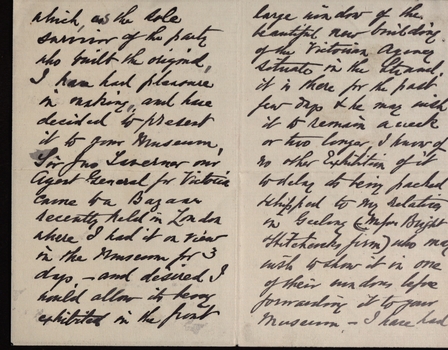 which, as the sole
survivor of the party
who built the original,
I have had pleasure
in making, and have
decided to present
it to your Museum,
Sir Jno Taverner our
Agent General for Victoria
came to a Bazaar
recently held in London
where I had it on view
in the Museum for 3
days – and desired I
would allow its being
exhibited in the front
large window of the
beautiful new building
of the Victorian Agency
situate in the Strand
it is there for the past
few days & he may wish
it to remain a week
or two longer, I know of
no other Exhibition of it
to delay its being packed
& shipped to my relation
in Geelong (Messrs Bright
& Hitchcocks firm) who may
wish to show it in one
of their windows before
forwarding it to your
Museum. – I have had